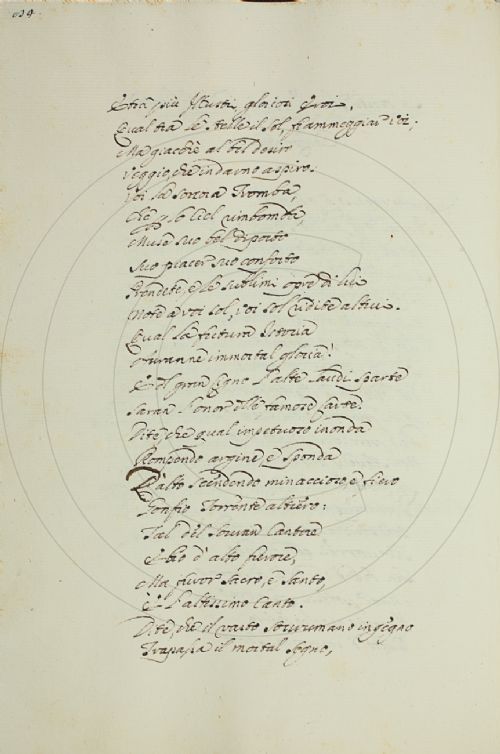 E tra più Illustri, gloriosi Eroi,
Qual tra le stelle il sol, fiammeggiar voi;
Ma giachè al bel desire
Veggio, che indarno aspiro:
Voi la sonora Tromba,
Che p lo Ciel rimbomba,
Muse suo bel diporto
Suo piacer suo conforto
Prendete, e le sublimi opre di lui
Note a voi sol, voi sol ridite altrui.
Qual la futura Istoria
immortal gloria!
E di gran segno l'alte laudi sparte
Saran l'onor delle famose carte.
Dite, che qual impetuoso inonda
Rompendo argine, e sponda
D'alto scendendo minaccioso, e fiero
Gonfio Torrente altiero:
Tal del sovran Cantore
d'alto furore,
Ma furor sacro, e santo,
È l'altissimo Canto.
Dite, che il vasto sovrumano ingegno
Trapassa il mortal segno,